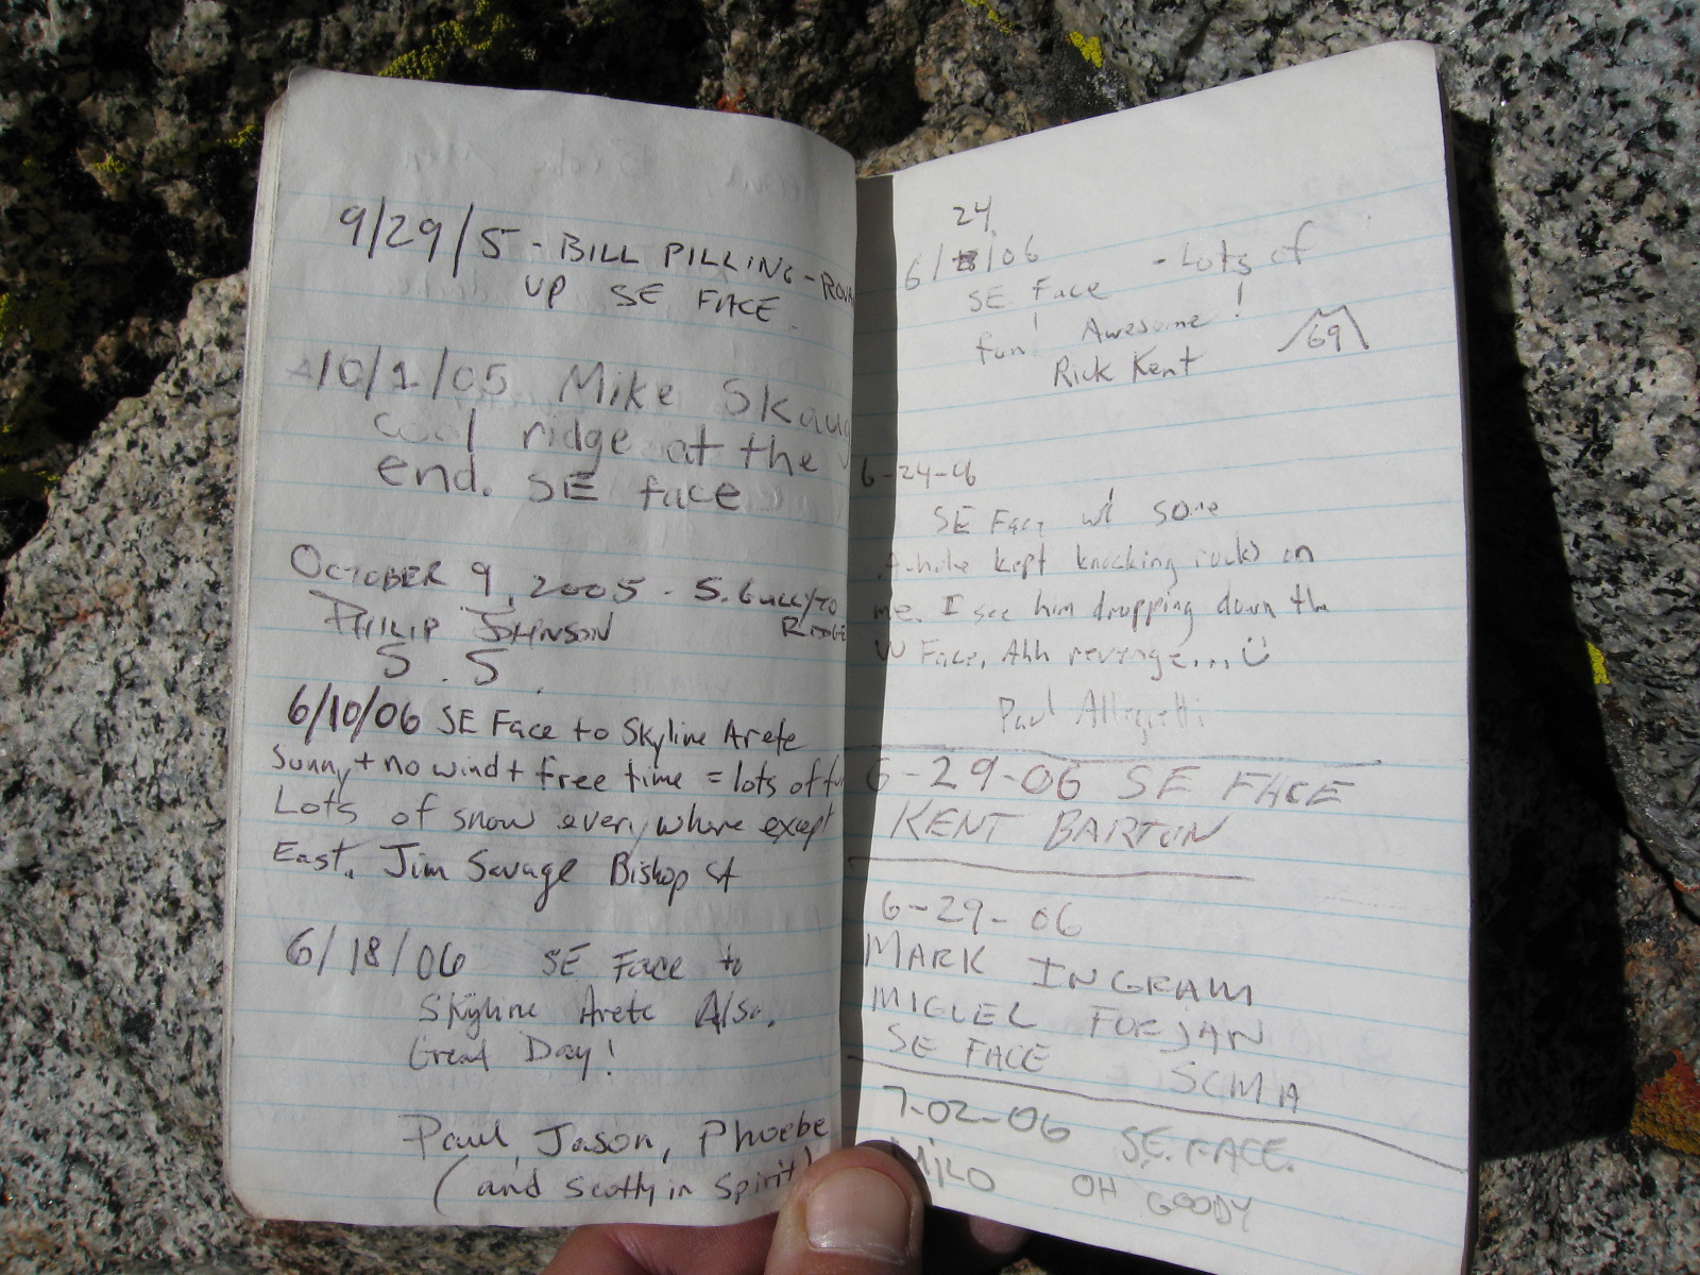 9/29/5 - BILL PILLING -
UP SE FACE.
10/1/05 Mike Skaug
cool ridge at the
end. SE face
OCTOBER 9, 2005 - S. GULLY TO
PHILIP JOHNSON RIDGE
S. S.
6/10/06 SE Face to Skyline Arete
Sunny + no wind + free time = lots of fun
Lots of snow everywhere except
East. Jim Savage Bishop CA
6/18/06 SE Face to
Skyline Arete Also.
Great Day!
Paul, Jason, Phoebe
(and Scotty in Spirit)
24
6/ /06 - Lots of
SE Face
fun! Awesome!
Rick Kent 69
6-24-06
SE Face w/ some
A-hole kept knocking rocks on
me. I see him dropping down the
W Face. Ahh revenge... :)
Paul Allegretti
6-29-06 SE FACE
KENT BARTON
6-29-06
MARK INGRAM
MIGUEL FORJAN
SE FACE SCMA
7-02-06 SE. FACE.
MILO OH GOODY